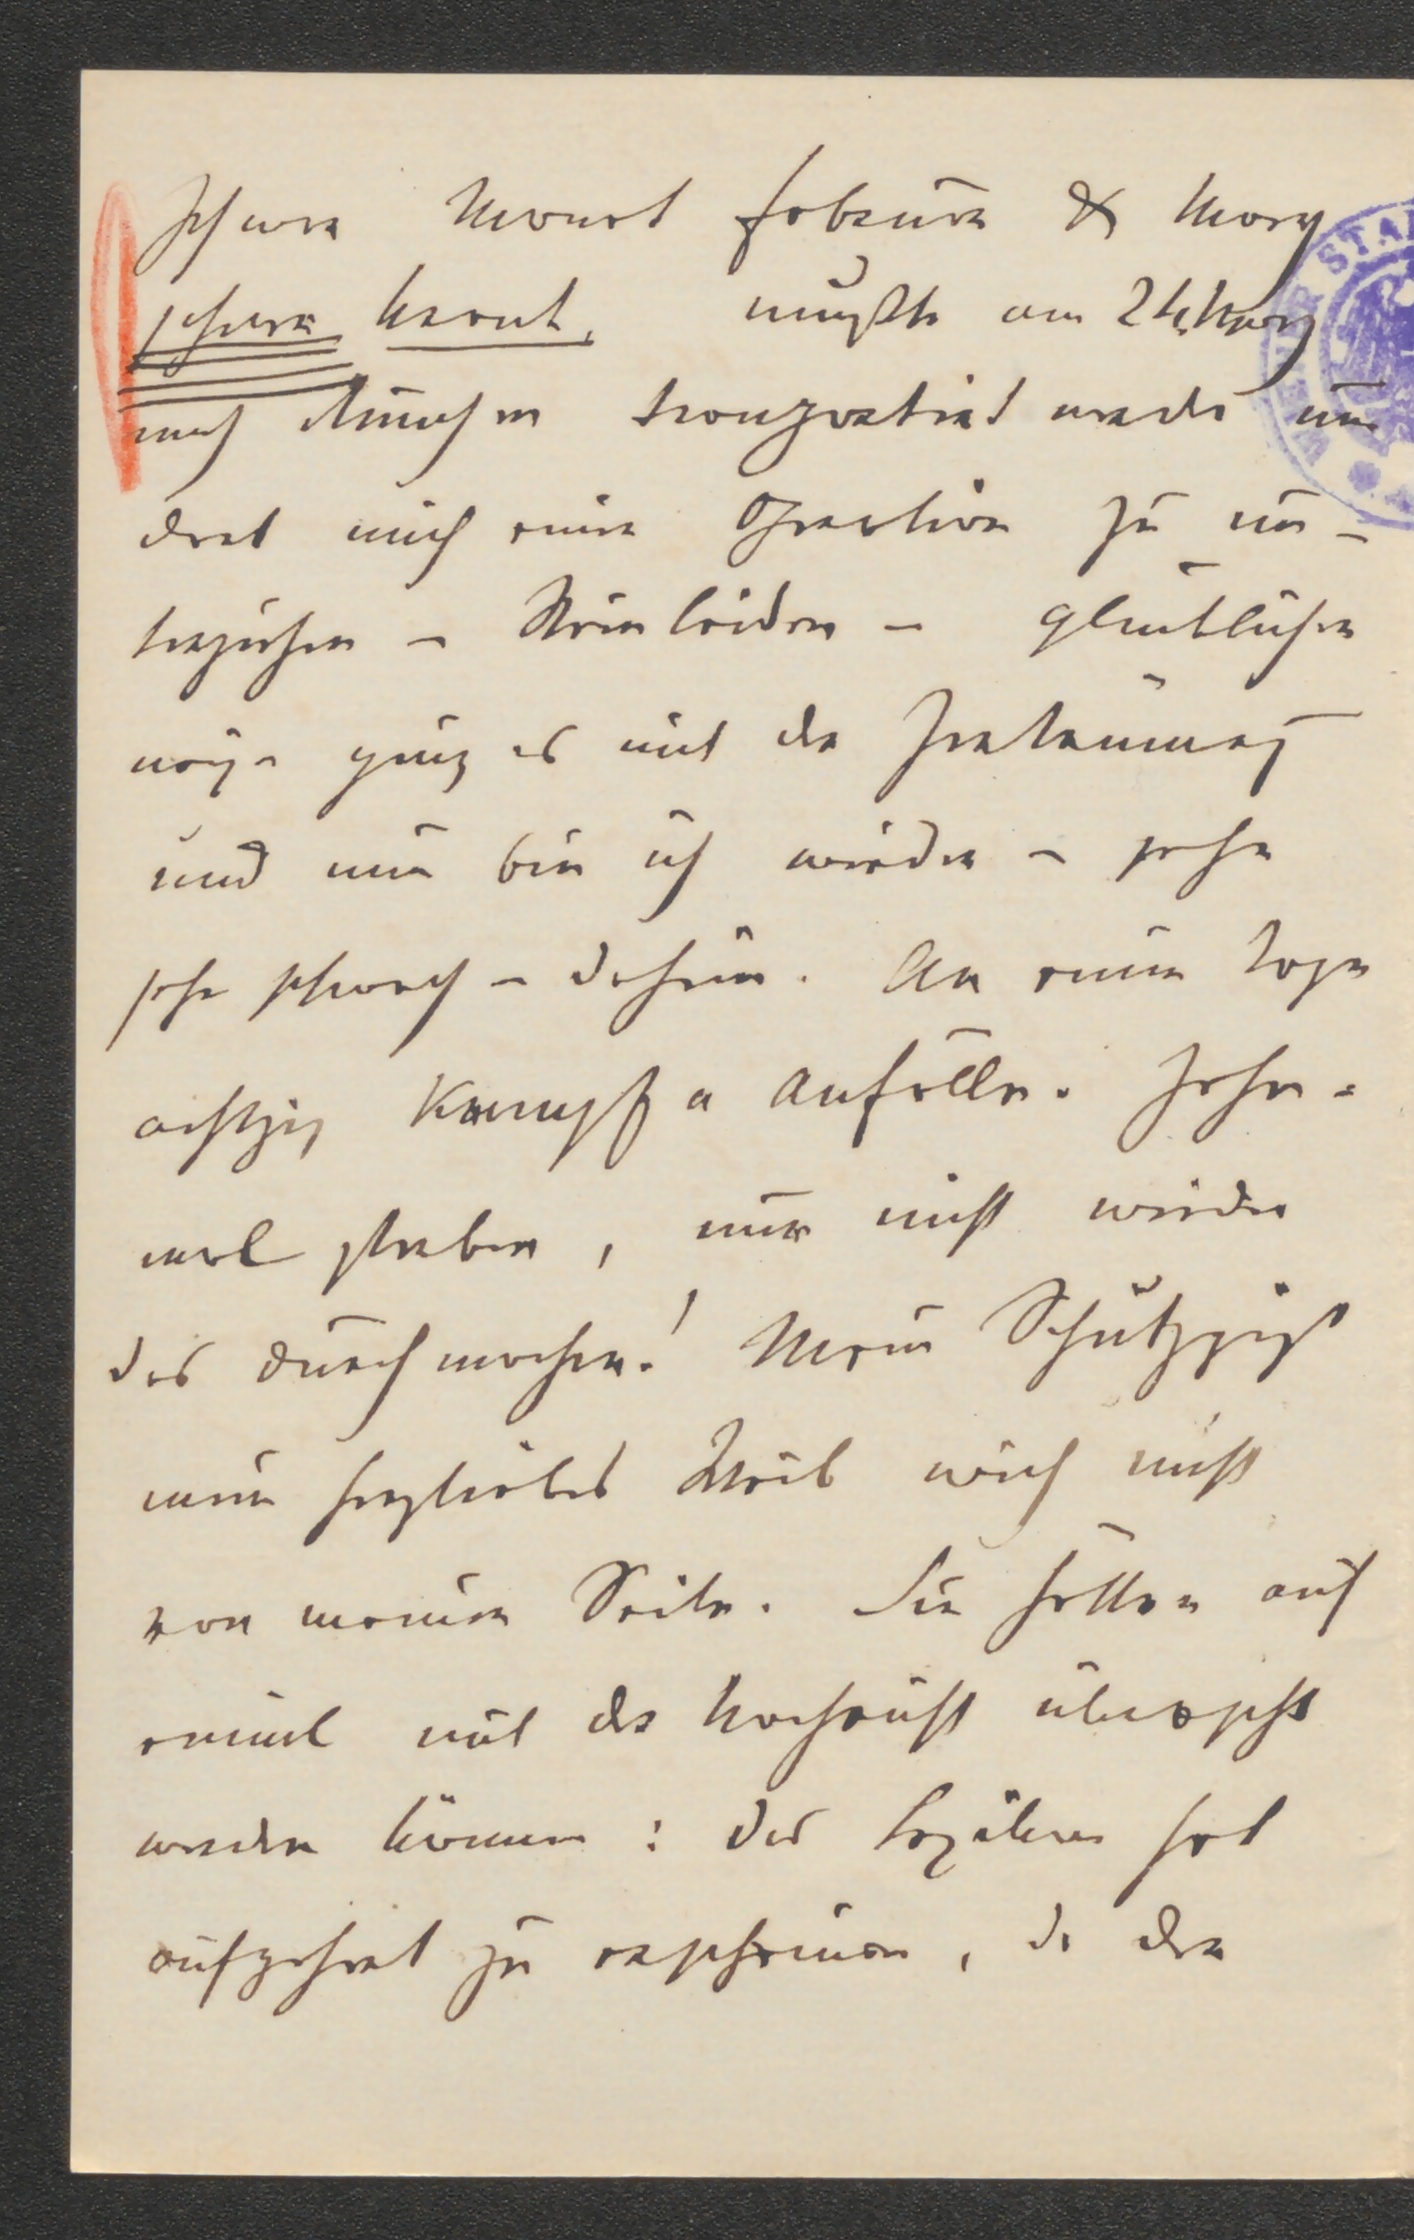 schwere Monat Februar & März
schwer krank, mußte am 24. März
nach München transportiert werde um
dort mich einer Operation zu un-
terziehen – Steinleiden – glücklicher
weise ging es mit der Zertrümmerung
und nun bin ich wieder – sehr
sehr schwach – daheim. An einem Tage
achtzig Krampfanfälle. Zehn-
mal sterben, nur nicht wieder
das durchmachen! Mein Schutzgeist
mein herzliebes Weib wich nicht
von meiner Seite. Sie hätten auf
einmal mit der Nachricht überrascht
werden können: der hat
aufgehört zu erscheinen, da der